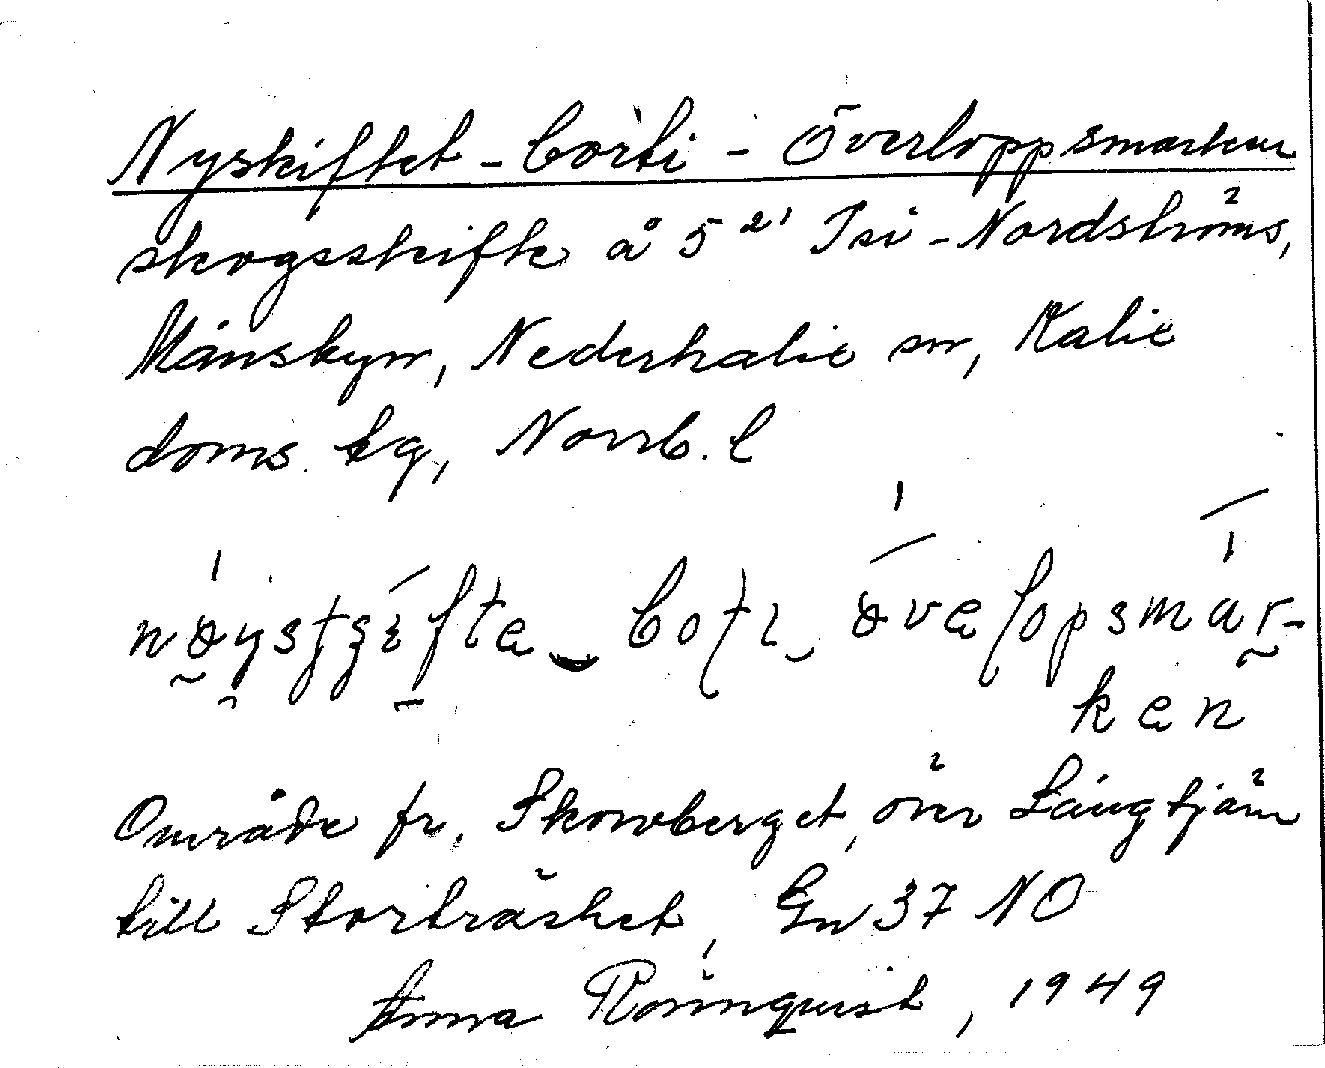 Nyskiftet - Corti - Överloppsmarken
skogsskifte å 5²¹ Isi-Nordströms,
Månsbyn, Nederkalix sn, Kalix
doms. tg, Norrb. l
Område fr. Skomberget, över Långtjärn
till Storträsket, Gn 37 NO
Anna Rönnquist, 1949